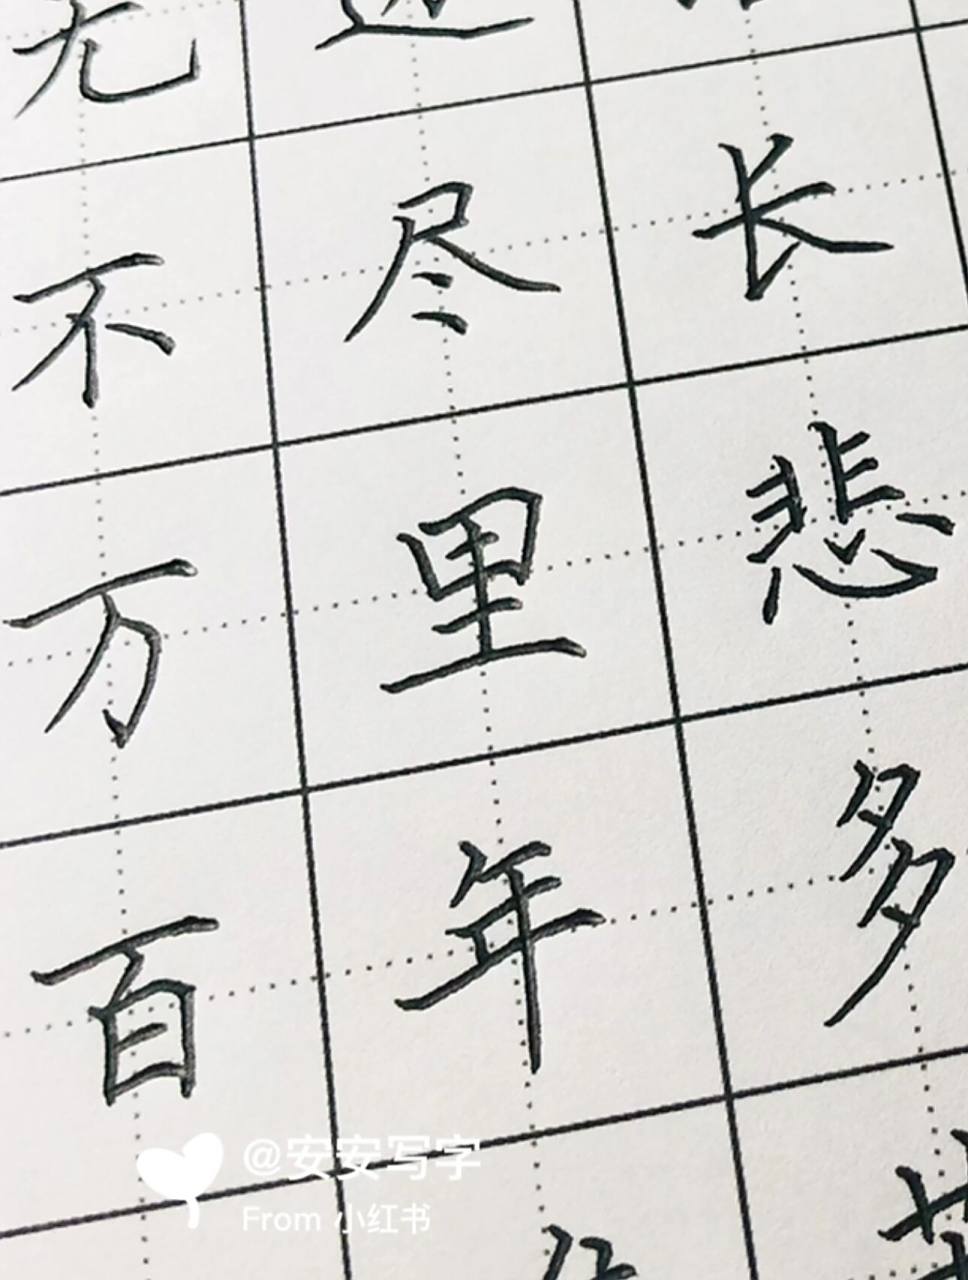 无边
不尽长
万里悲
百年多
@安安写字
From 小红书